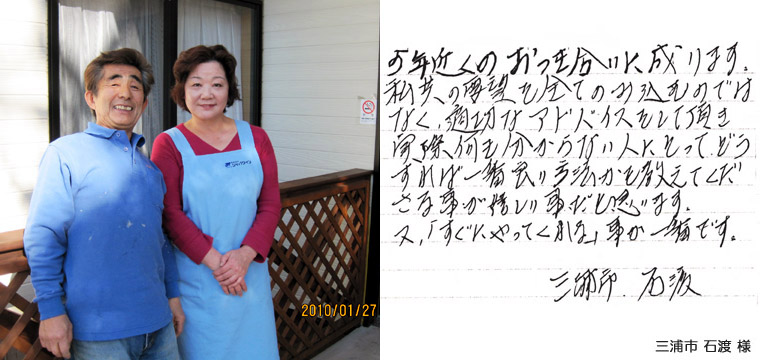 2010/01/27
5年近くのおつき合いに成ります。
私共の要望を全てのみ込むのでは
なく、適切なアドバイスをして頂き
実際何も分からない人にとって、どう
すれば一番良い方法かを教えてくだ
さる事が嬉しい事だと思います。
又、「すぐにやってくれる」事が一番です。
三浦市 石渡
三浦市 石渡 様